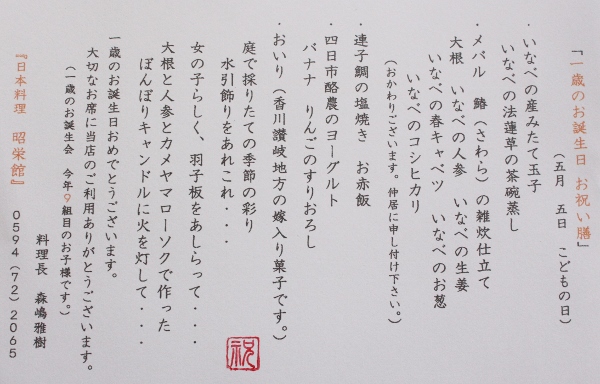 「一歳のお誕生日 お祝い膳」
（五月 五日 こどもの日）
・いなべの産みたて玉子
いなべの法蓮草の茶碗蒸し
・メバル 鰆（さわら）の雑炊仕立て
大根 いなべの人参 いなべの生姜
いなべの春キャベツ いなべのお葱
いなべのコシヒカリ
（おかわりございます。仲居に申し付け下さい。）
・連子鯛の塩焼き お赤飯
・四日市酪農のヨーグルト
バナナ りんごのすりおろし
・おいり（香川讃岐地方の嫁入り菓子です。）
庭で採りたての季節の彩り
水引飾りをあれこれ・・・
女の子らしく、羽子板をあしらって・・・
大根と人参とカメヤマローソクで作った
ぼんぼりキャンドルに火を灯して・・・
一歳のお誕生日おめでとうございます。
大切なお席に当店のご利用ありがとうございます。
（一歳のお誕生会 今年９組目のお子様です。）
料理長 森嶋雅樹
『日本料理 昭栄館』 ０５９４（７２）２０６５
祝